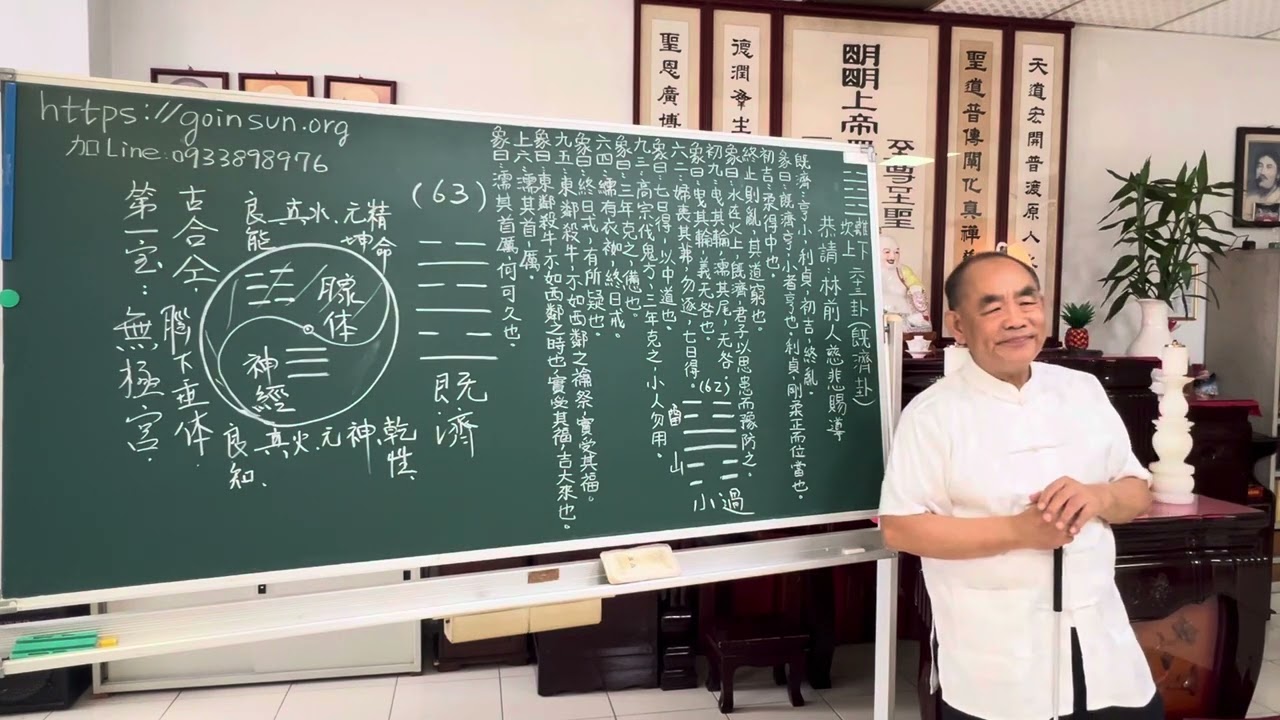 https://goinsun.org
加Line:0933898976
離下
坎上
六十三卦(既濟卦)
恭請:林前人慈悲賜導
既濟:亨小,利貞,初吉,終亂。
彖曰:既濟亨,小者亨也,利貞,剛柔正而位當也。
初吉,柔得中也。
終止則亂,其道窮也。
象曰:水在火上,既濟,君子以思患而豫防之。
初九:曳其輪,濡其尾,无咎。
象曰:曳其輪,義无咎也。
六二:婦喪其茀,勿逐,七日得。
象曰:七日得,以中道也。
九三:高宗伐鬼方,三年克之,小人勿用。
象曰:三年克之,憊也。
六四:繻有衣袽,終日戒。
象曰:終日戒,有所疑也。
九五:東鄰殺牛,不如西鄰之禴祭,實受其福。
象曰:東鄰殺牛,不如西鄰之時也,實受其福,吉大來也。
上六:濡其首,厲。
象曰:濡其首厲,何可久也。
(62)
山
小過
(63)
既濟
良能、真水、元精、坤命
腺体
神經
良知、真火、元神、乾性、
古合仝、腦下垂体.
第一宝:無極宮.
天道宏開普渡原人
聖道普傳闡化真禪
明明上帝
至尊至聖
德潤羣生
聖恩廣博